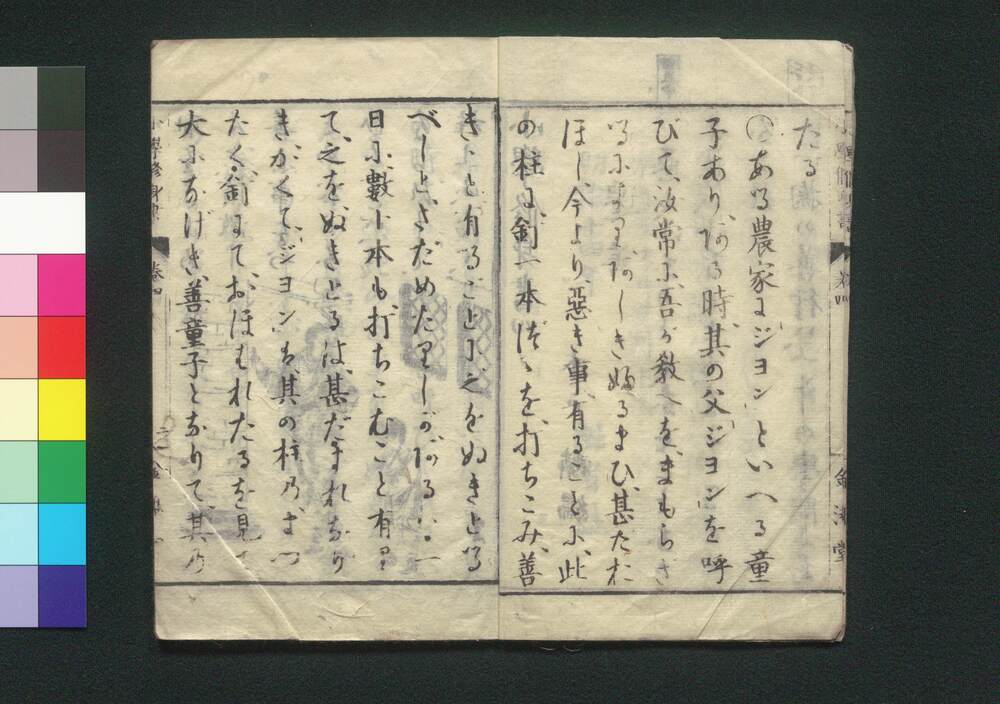 たる
〇ある農家にジヨンといへる童
子あり、ある時、其の父ジヨンを呼
びて、汝常に吾が教へを、まもらざ
るによりあしきふるまひ、甚だお
ほし、今より、悪き事、有るごとに、此
の柱に、釘一本づゝを、打ちこみ、善
きこと有るごとに、之をぬきとる
べしと、さだめたりしが、ある
日に、數十本も、打ちこむこと有り
て、之を、ぬきとるは、甚だまれなり
き、かくて、ジヨンは、其の柱の、まつ
たく、釘にて、おほはれたるを見て
大になげき、善童子となりて、其の
小學修身書
巻四
金港堂